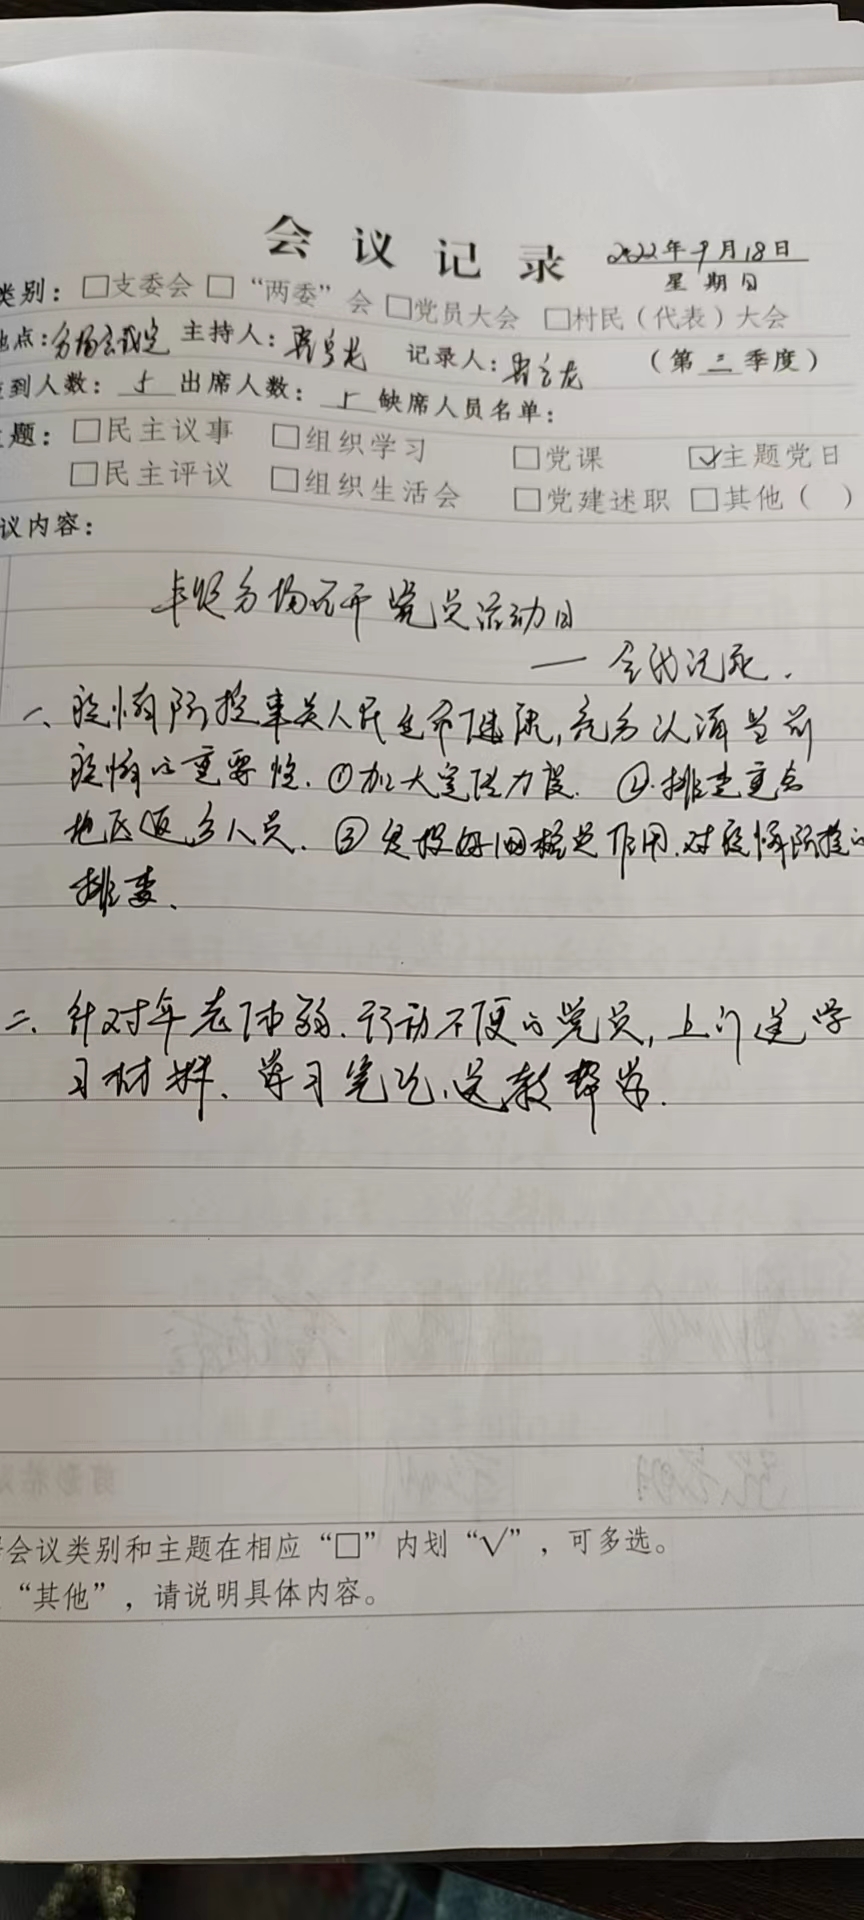 会议记录 2022年9月18日
星期日
类别：□支委会 □“两委”会 □党员大会 □村民（代表）大会
点：分场会议室 主持人： 记录人： （第三季度）
到人数： 出席人数： 缺席人员名单：
题：□民主议事 □组织学习 □党课 ☑主题党日
□民主评议 □组织生活会 □党建述职 □其他（ ）
议内容：
分场召开党员活动日
一、疫情防控事关人民生命健康，充分认清当前
疫情的重要性．①加大宣传力度．②．排查重点
地区返乡人员．③发挥好网格员作用．对疫情防控的
排查．
二、针对年老体弱．行动不便的党员，上门送学
习材料、学习笔记，送教帮学．
会议类别和主题在相应“□”内划“√”，可多选。
“其他”，请说明具体内容。